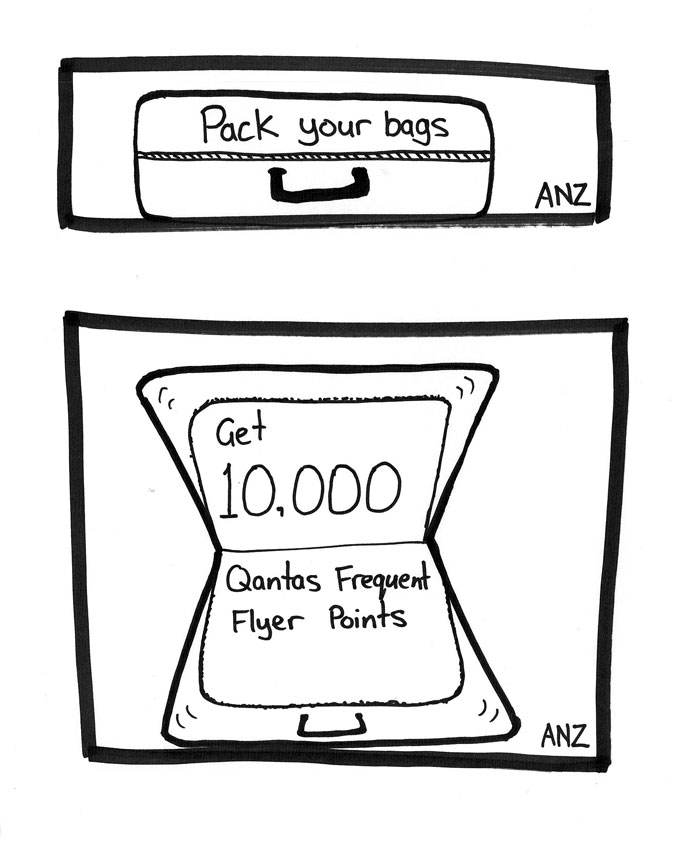 Pack your bags
ANZ
Get
10,000
Qantas Frequent
Flyer Points
ANZ